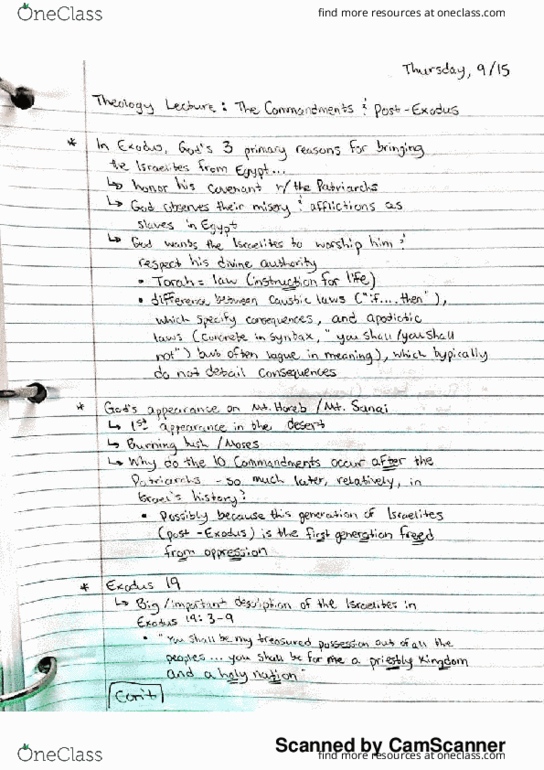 OneClass
find more resources at oneclass.com
Thursday, 9/15
Theology Lecture: The Commandments & Post-Exodus
* In Exodus, God's 3 primary reasons for bringing
the Israelites from Egypt...
↳ honor his covenant w/ the Patriarchs
↳ God observes their misery & afflictions as
slaves in Egypt
↳ God wants the Israelites to worship him &
respect his divine authority
• Torah = law (instruction for life)
• difference between caustic laws ("if....then"),
which specify consequences, and apodictic
laws (concrete in syntax, "you shall/you shall
not") but often vague in meaning), which typically
do not detail consequences
* God's appearance on Mt. Horeb / Mt. Sanai
↳ 1st appearance in the desert
↳ Burning bush / Moses
↳ Why do the 10 Commandments occur after the
Patriarchs - so much later, relatively, in
Israel's history?
• Possibly because this generation of Israelites
(post-Exodus) is the first generation freed
from oppression
* Exodus 19
↳ Big/important description of the Israelites in
Exodus 19: 3-9
• "You shall be my treasured possession out of all the
peoples... you shall be for me a priestly kingdom
and a holy nation"
Con't
Scanned by CamScanner
OneClass
find more resources at oneclass.com